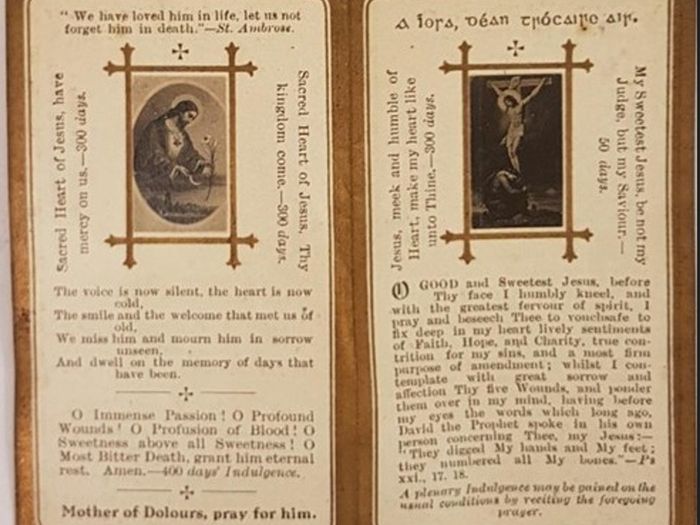 "We have loved him in life, let us not
forget him in death."—St. Ambrose.
Sacred Heart of Jesus, have
mercy on us.—300 days.
Sacred Heart of Jesus, Thy
kingdom come.—300 days.
The voice is now silent, the heart is now
cold,
The smile and the welcome that met us of
old,
We miss him and mourn him in sorrow
unseen,
And dwell on the memory of days that
have been.
O Immense Passion! O Profound
Wounds! O Profusion of Blood! O
Sweetness above all Sweetness! O
Most Bitter Death, grant him eternal
rest. Amen.—400 days' Indulgence.
Mother of Dolours, pray for him.
A Íosa, déan trócaire air.
Jesus, meek and humble of
Heart, make my heart like
unto Thine.—300 days.
My Sweetest Jesus, be not my
Judge, but my Saviour.—
50 days.
O GOOD and Sweetest Jesus, before
Thy face I humbly kneel, and
with the greatest fervour of spirit, I
pray and beseech Thee to vouchsafe to
fix deep in my heart lively sentiments
of Faith, Hope, and Charity, true con-
trition for my sins, and a most firm
purpose of amendment; whilst I con-
template with great sorrow and
affection Thy five Wounds, and ponder
them over in my mind, having before
my eyes the words which long ago,
David the Prophet spoke in his own
person concerning Thee, my Jesus:—
"They digged My hands and My feet;
they numbered all My bones."—Ps
xxi., 17. 18.
A plenary Indulgence may be gained on the
usual conditions by reciting the foregoing
prayer.